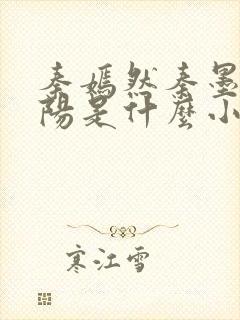 秦嫣然秦墨
陽是什麼小
寒江雪